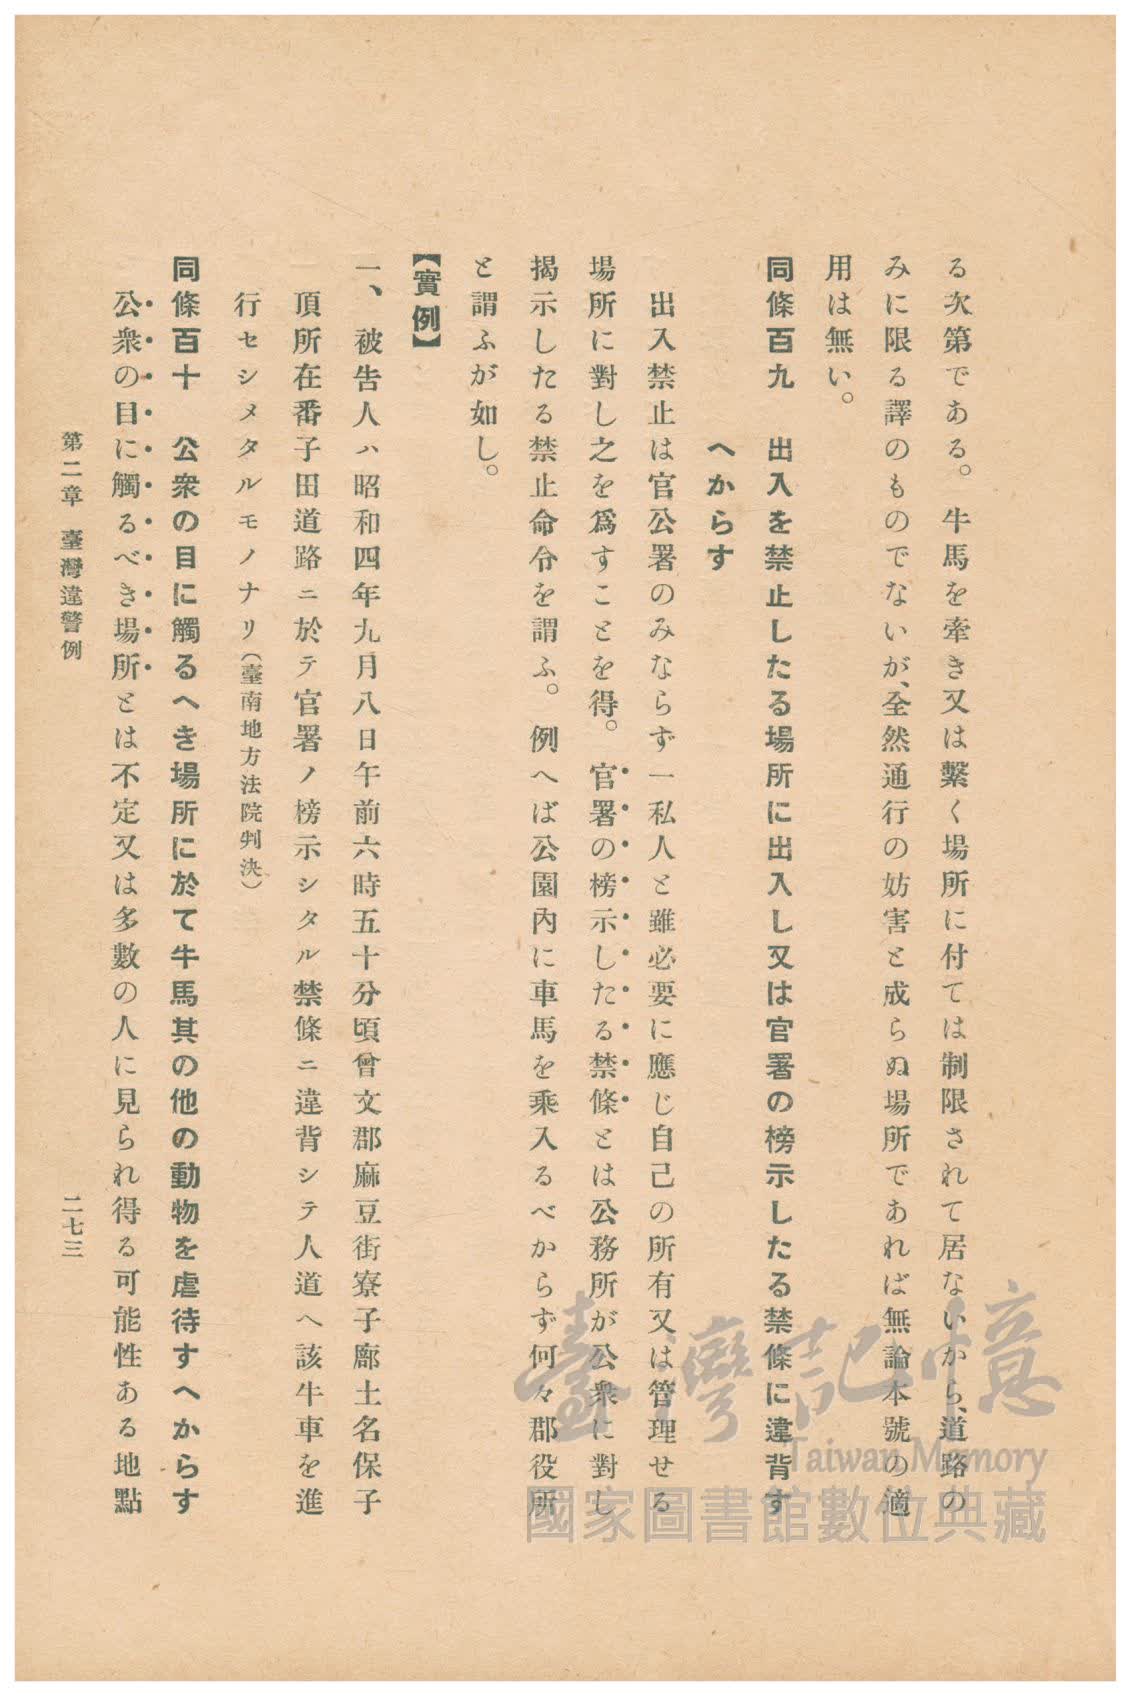 る次第である。牛馬を牽き又は繋く場所に付ては制限されて居ないから、道路の
みに限る譯のものでないが、全然通行の妨害と成らぬ場所であれば無論本號の適
用は無い。
同條百九　出入を禁止したる場所に出入し又は官署の榜示したる禁條に違背す
へからす
出入禁止は官公署のみならず一私人と雖必要に應じ自己の所有又は管理せる
場所に對し之を爲すことを得。官署の榜示したる禁條とは公務所が公衆に對し
揭示したる禁止命令を謂ふ。例へば公園內に車馬を乘入るべからず何々郡役所
と謂ふが如し。
【實例】
一、被告人ハ昭和四年九月八日午前六時五十分頃曾文郡麻豆街寮子廍土名保子
頂所在番子田道路ニ於テ官署ノ榜示シタル禁條ニ違背シテ人道へ該牛車を進
行セシメタルモノナリ（臺南地方法院判決）
同條百十　公衆の目に觸るへき場所に於て牛馬其の他の動物を虐待すへからす
公衆の目に觸るべき場所とは不定又は多數の人に見られ得る可能性ある地點
第二章　臺灣違警例
二七三
臺灣記憶
Taiwan Memory
國家圖書館數位典藏